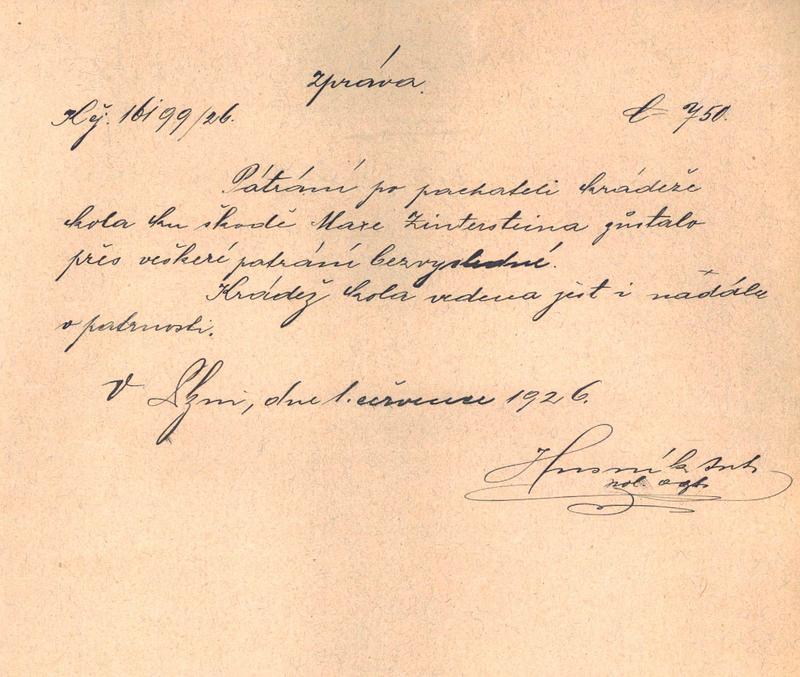 Zpráva.
Kčj. 16199/26. č 750.
Pátrání po pachateli krádeže
kola ku škodě Maxe Zintersteina zůstalo
přes veškeré patrání bezvysledné.
Krádež kola vedena jest i nadále
v patrnosti.
V Plzni, dne 1. července 1926.
Husník
pol. agt.